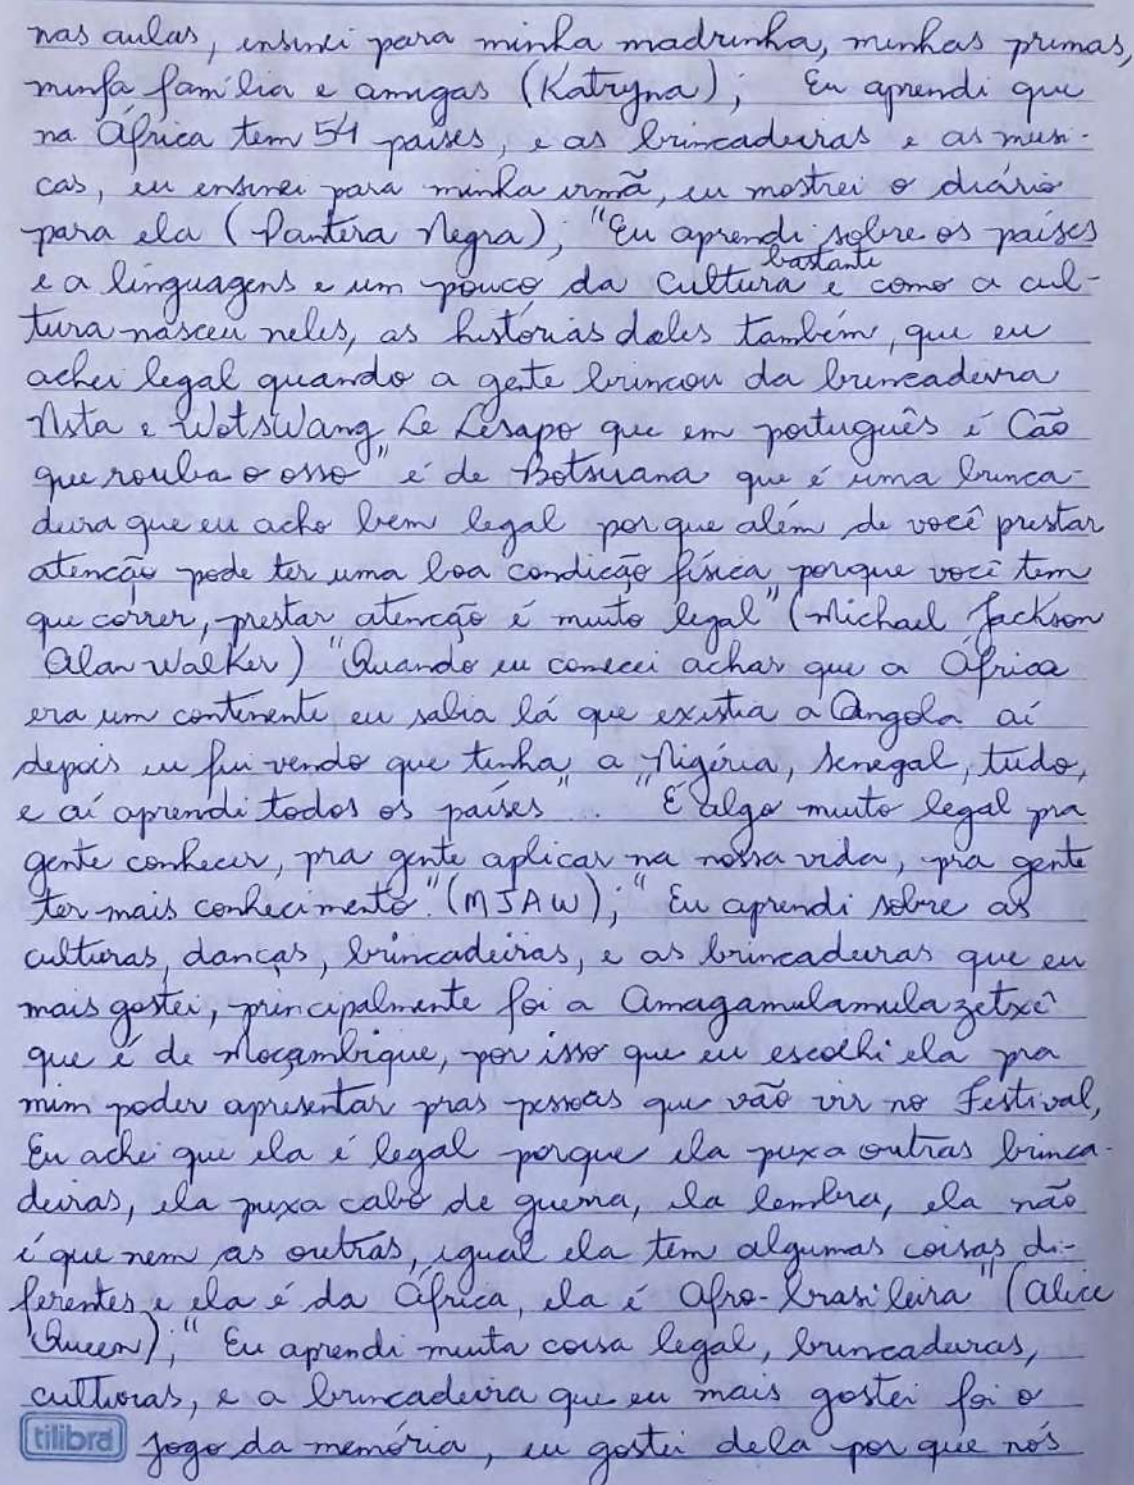 nas aulas, ensinei para minha madrinha, minhas primas,
minfa família e amigas (Katryna); Eu aprendi que
na África tem 54 países, e as brincadeiras e as musi-
cas, eu ensinei para minha irmã, eu mostrei o diário
para ela (Pantera Negra); "Eu aprendi sobre os países
e a linguagens e um pouco da cultura bastante e como a cul-
tura nasceu neles, as histórias deles também, que eu
achei legal quando a gente brincou da brincadeira
Nsta e WotsWang Le Lesapo que em português é Cão
que rouba o osso" é de Botsuana que é uma brinca-
deira que eu acho bem legal porque além de você prestar
atencão pode ter uma boa condicão física, porque você tem
que correr, prestar atencão é muito legal" (Michael Jackson
Alan Walker) "Quando eu comecei achar que a África
era um continente eu sabia lá que existia a Angola aí
depois eu fui vendo que tinha a Nigéria, Senegal, tudo,
e aí aprendi todos os países"... "É algo muito legal pra
gente conhecer, pra gente aplicar na nossa vida, pra gente
ter mais conhecimento." (MJAW); "Eu aprendi sobre as
culturas, danças, brincadeiras, e as brincadeiras que eu
mais gostei, principalmente foi a Amagamulamula zetxê
que é de Moçambique, por isso que eu escolhi ela pra
mim poder apresentar pras pessoas que vão vir no Festival,
Eu achei que ela é legal porque ela puxa outras brinca-
deiras, ela puxa cabo de guerra, ela lembra, ela não
é que nem as outras, igual ela tem algumas coisas di-
ferentes e ela é da África, ela é Afro-brasileira" (Alice
Queen); "Eu aprendi muita coisa legal, brincadeiras,
culturas, e a brincadeira que eu mais gostei foi o
tilibra jogo da memória, eu gostei dela por que nós